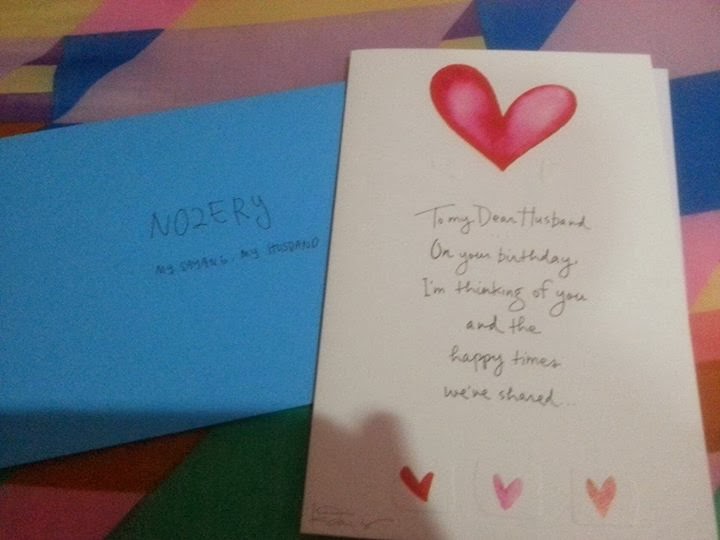 NO2ERY
MY SAYANG, MY HUSBAND
To my Dear Husband
On your birthday,
I'm thinking of you
and the
happy times
we've shared...